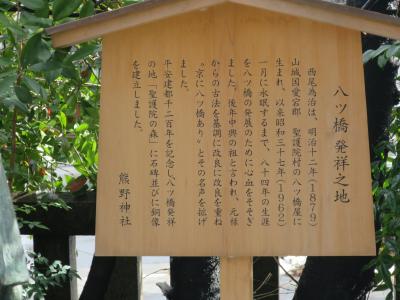 八ツ橋発祥之地
西尾為治は、明治十二年(1879)
山城国愛宕郡 聖護院村の八ツ橋屋に
生まれ、以来昭和三十七年(1962)
一月に永眠するまで、八十四年の生涯
を八ツ橋の発展のために心血をそそぎ
ました。後年中興の祖と言われ、元禄
からの古法を基調に改良に改良を重ね
〝京に八ツ橋あり〟とその名声を拡げ
ました。
平安建都千二百年を記念し八ツ橋発祥
の地「聖護院の森」に石碑並びに銅像
を建立しました。
熊野神社